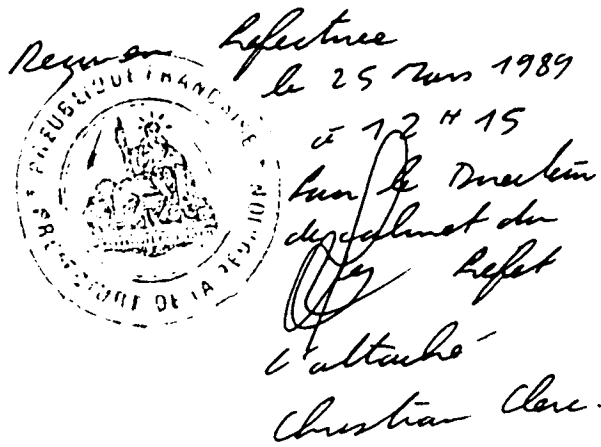 Reçu en Préfecture
le 25 Mars 1989
à 12 H 15
Pour le Directeur
de cabinet du
Préfet
L'attaché
Christian Clerc.
REPUBLIQUE FRANCAISE
PREFECTURE DE LA REUNION